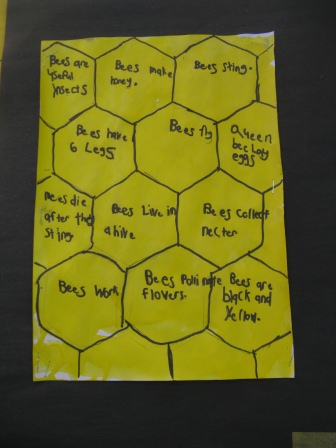 Bees are
useful
insects
Bees make
honey.
Bees sting.
Bees have
6 Legs
Bees fly
Queen
bee Lay
eggs
Bees die
after they
sting
Bees Live in
a hive
Bees collect
necter
Bees work
Bees Pollinate
flovers.
Bees are
black and
Yellow.